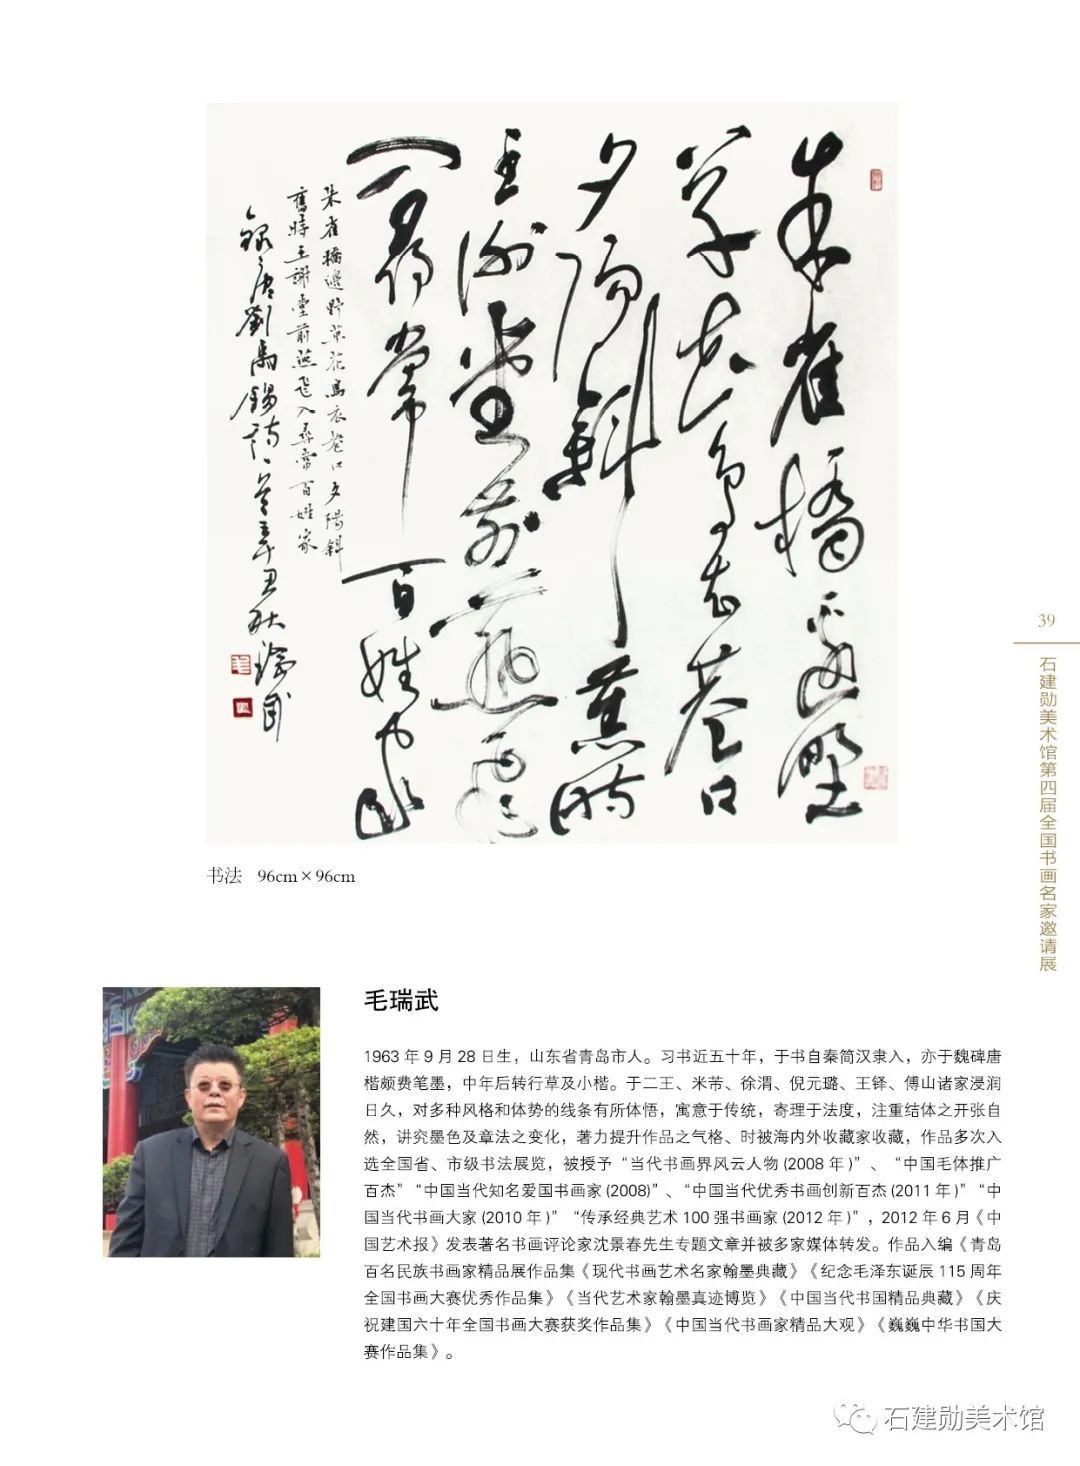 朱雀橋邊野
草花烏衣巷口
夕陽斜舊時
王謝堂前燕飛
入尋常百姓家
朱雀橋邊野草花烏衣巷口夕陽斜
舊時王謝堂前燕飛入尋常百姓家
錄唐劉禹錫詩一首辛丑秋瑞武
书法 96cm×96cm
39
石建勋美术馆第四届全国书画名家邀请展
毛瑞武
1963年9月28日生，山东省青岛市人。习书近五十年，于书自秦简汉隶入，亦于魏碑唐
楷颇费笔墨，中年后转行草及小楷。于二王、米芾、徐渭、倪元璐、王铎、傅山诸家浸润
日久，对多种风格和体势的线条有所体悟，寓意于传统，寄理于法度，注重结体之开张自
然，讲究墨色及章法之变化，著力提升作品之气格、时被海内外收藏家收藏，作品多次入
选全国省、市级书法展览，被授予“当代书画界风云人物(2008年)”、“中国毛体推广
百杰”“中国当代知名爱国书画家(2008)”、“中国当代优秀书画创新百杰(2011年)”“中
国当代书画大家(2010年)”“传承经典艺术100强书画家(2012年)”，2012年6月《中
国艺术报》发表著名书画评论家沈景春先生专题文章并被多家媒体转发。作品入编《青岛
百名民族书画家精品展作品集《现代书画艺术名家翰墨典藏》《纪念毛泽东诞辰115周年
全国书画大赛优秀作品集》《当代艺术家翰墨真迹博览》《中国当代书国精品典藏》《庆
祝建国六十年全国书画大赛获奖作品集》《中国当代书画家精品大观》《巍巍中华书国大
赛作品集》。
石建勋美术馆